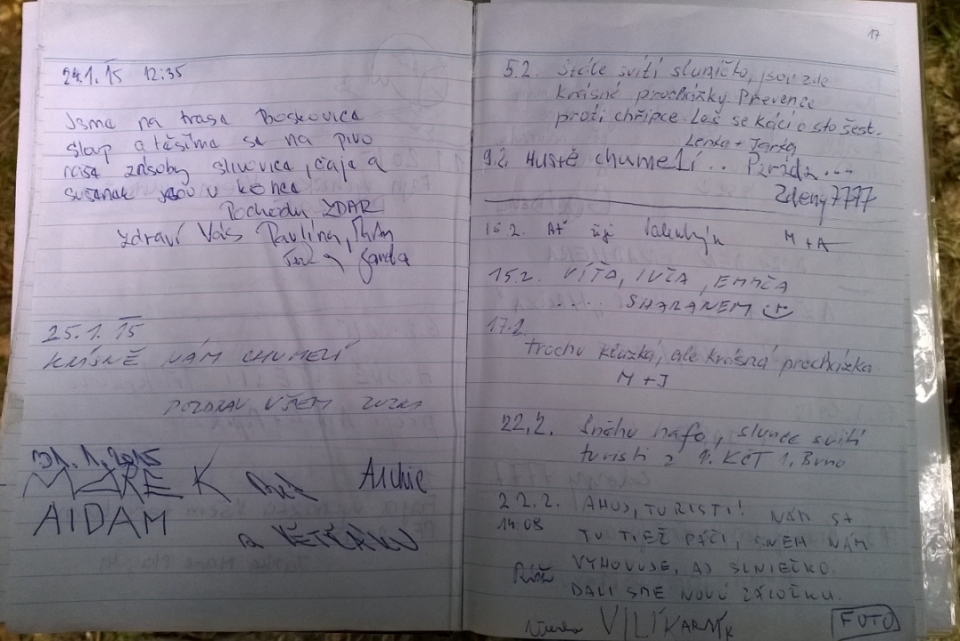 24.1.15 12:35
Jsme na trase Boskovice
sloup a těšíme se na pivo
zásoby slivovice, čaje a
sušenek jsou u konce
Pochodu ZDAR
Zdraví Vás Pavlína,
Janda
25.1.15
KRÁSNĚ NÁM CHUMELÍ
POZDRAV VŠEM ZUZKA
31.1.2015
MAREK Archie
AIDAM
a VĚTŘÁKU
17
5.2. Stále svítí sluníčko, jsou zde
krásné procházky Prevence
proti chřipce. Les se kácí o sto šest.
Lenka + Jarka
9.2. HUSTĚ chumelí.. Paráda...
Zdeny7777
M + A
15.2. VÍŤA, IVČA, EMMČA
..... SHARANEM
17.2.
trochu kluzká, ale krásná procházka
M + J
22.2. Sněhu hafo, slunce svítí
turisti z 1. KČT 1, Brno
22.2. AHOJ, TURISTI! NÁM SA
14.08 TU TIEŽ PÁČI, SNEH NÁM
VYHOVUJE, AJ SLNIEČKO.
DALI SME NOVÚ ZÁLOŽKU.
VILI KARNÍK FOTO